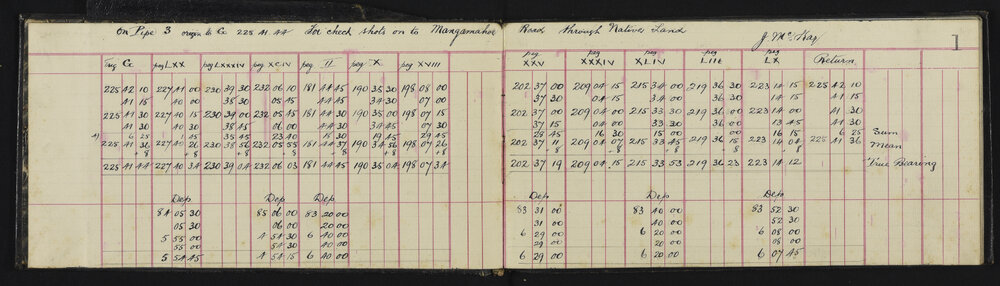 On Pipe 3 origin to Cc 225 41 44 For check shots on to Mangamahoe Road through Native Land J. McKay
1
Trig Cc peg LXX peg LXXXIV peg XCIV peg II peg X peg XVIII peg XXV peg XXXIV peg XLIV peg LIII peg LX Return
225 42 10 227 41 00 230 39 30 232 06 10 181 44 45 190 35 30 198 08 00 202 37 00 209 04 00 215 34 00 219 36 30 223 14 15 225 42 10
41 15 40 00 38 30 05 45 44 45 34 30 07 00 37 30 04 15 34 00 36 15 14 15 41 15
225 41 30 227 40 15 230 39 00 232 05 45 181 44 30 190 35 00 198 07 15 202 37 00 209 04 00 215 33 30 219 36 30 223 14 00 41 30
41 30 40 30 38 45 06 00 44 30 34 45 07 30 37 15 04 15 33 30 36 15 13 45 41 30
4) 6 25 1 45 35 45 23 40 1 30 19 45 29 45 28 45 16 30 15 00 16 15 6 25 Sum
225 41 36 227 40 26 230 38 56 232 05 55 181 44 37 190 34 56 198 07 26 202 37 11 209 04 07 215 33 45 219 36 15 223 14 04 225 41 36 Mean
+8 +8 +8 +8 8 +8 +8 +8 +8 +8 8 +8
225 41 44 227 40 34 230 39 04 232 06 03 181 44 45 190 35 04 198 07 34 202 37 19 209 04 15 215 33 53 219 36 23 223 14 12 True Bearing
Dep Dep Dep Dep Dep Dep
84 05 30 85 06 00 83 20 00 83 31 00 83 40 00 83 52 30
05 30 06 00 20 00 31 00 40 00 52 30
5 55 00 4 54 30 6 40 00 6 29 00 6 20 00 6 08 00
55 00 54 30 40 00 29 00 20 00 08 00
5 54 45 4 54 15 6 40 00 6 29 00 6 20 00 6 07 45